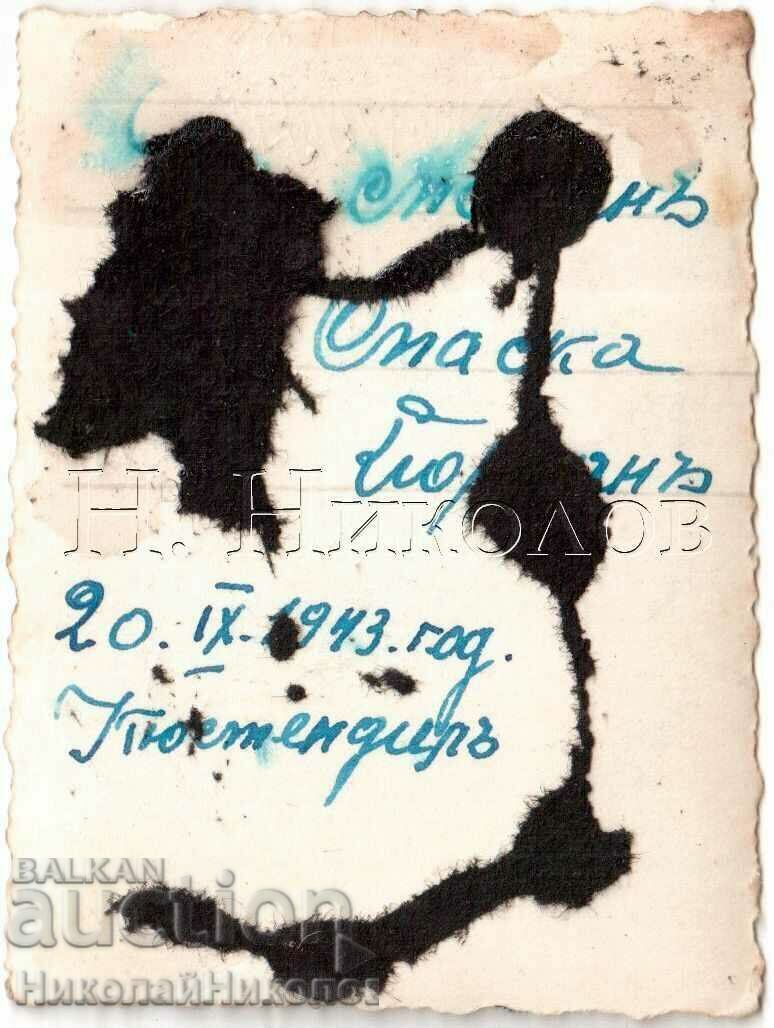 Спаска
Н. Николов
20. IX. 1943. год.
Кюстендилъ
BALKAN
auction
НиколайНиколов